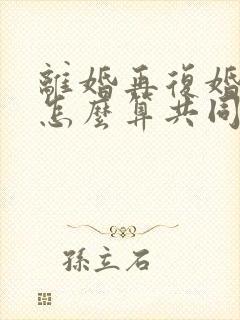 離婚再復婚
怎麼算共同
孫立石